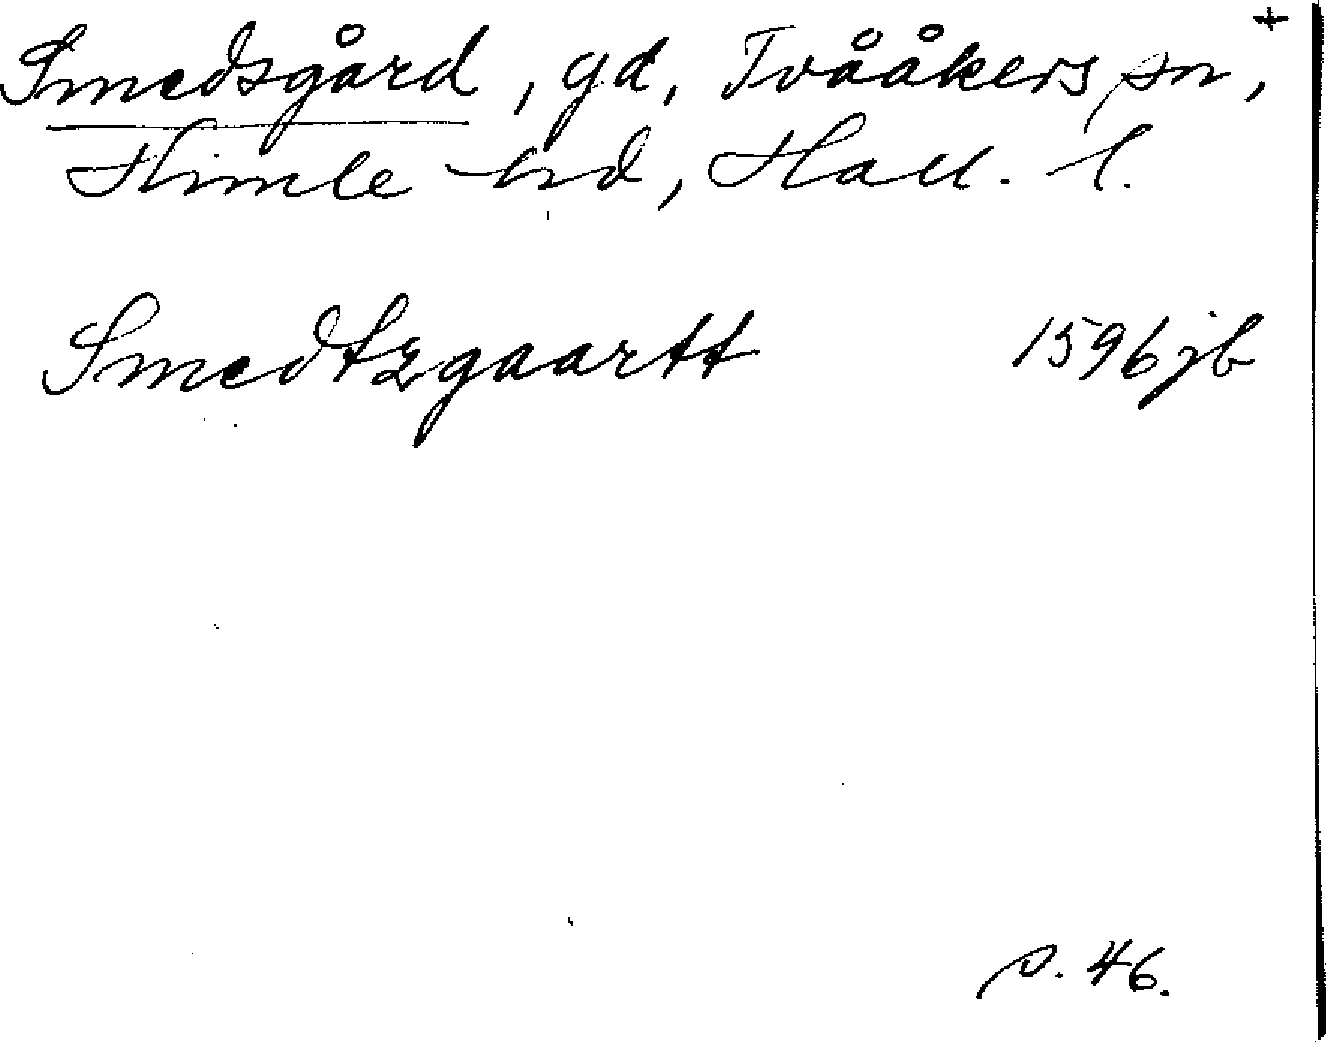 +
Smedsgård, gd, Tvååkers sn,
Himle hd, Hall. l.
Smedtzgaartt 1596 jb
s. 46.